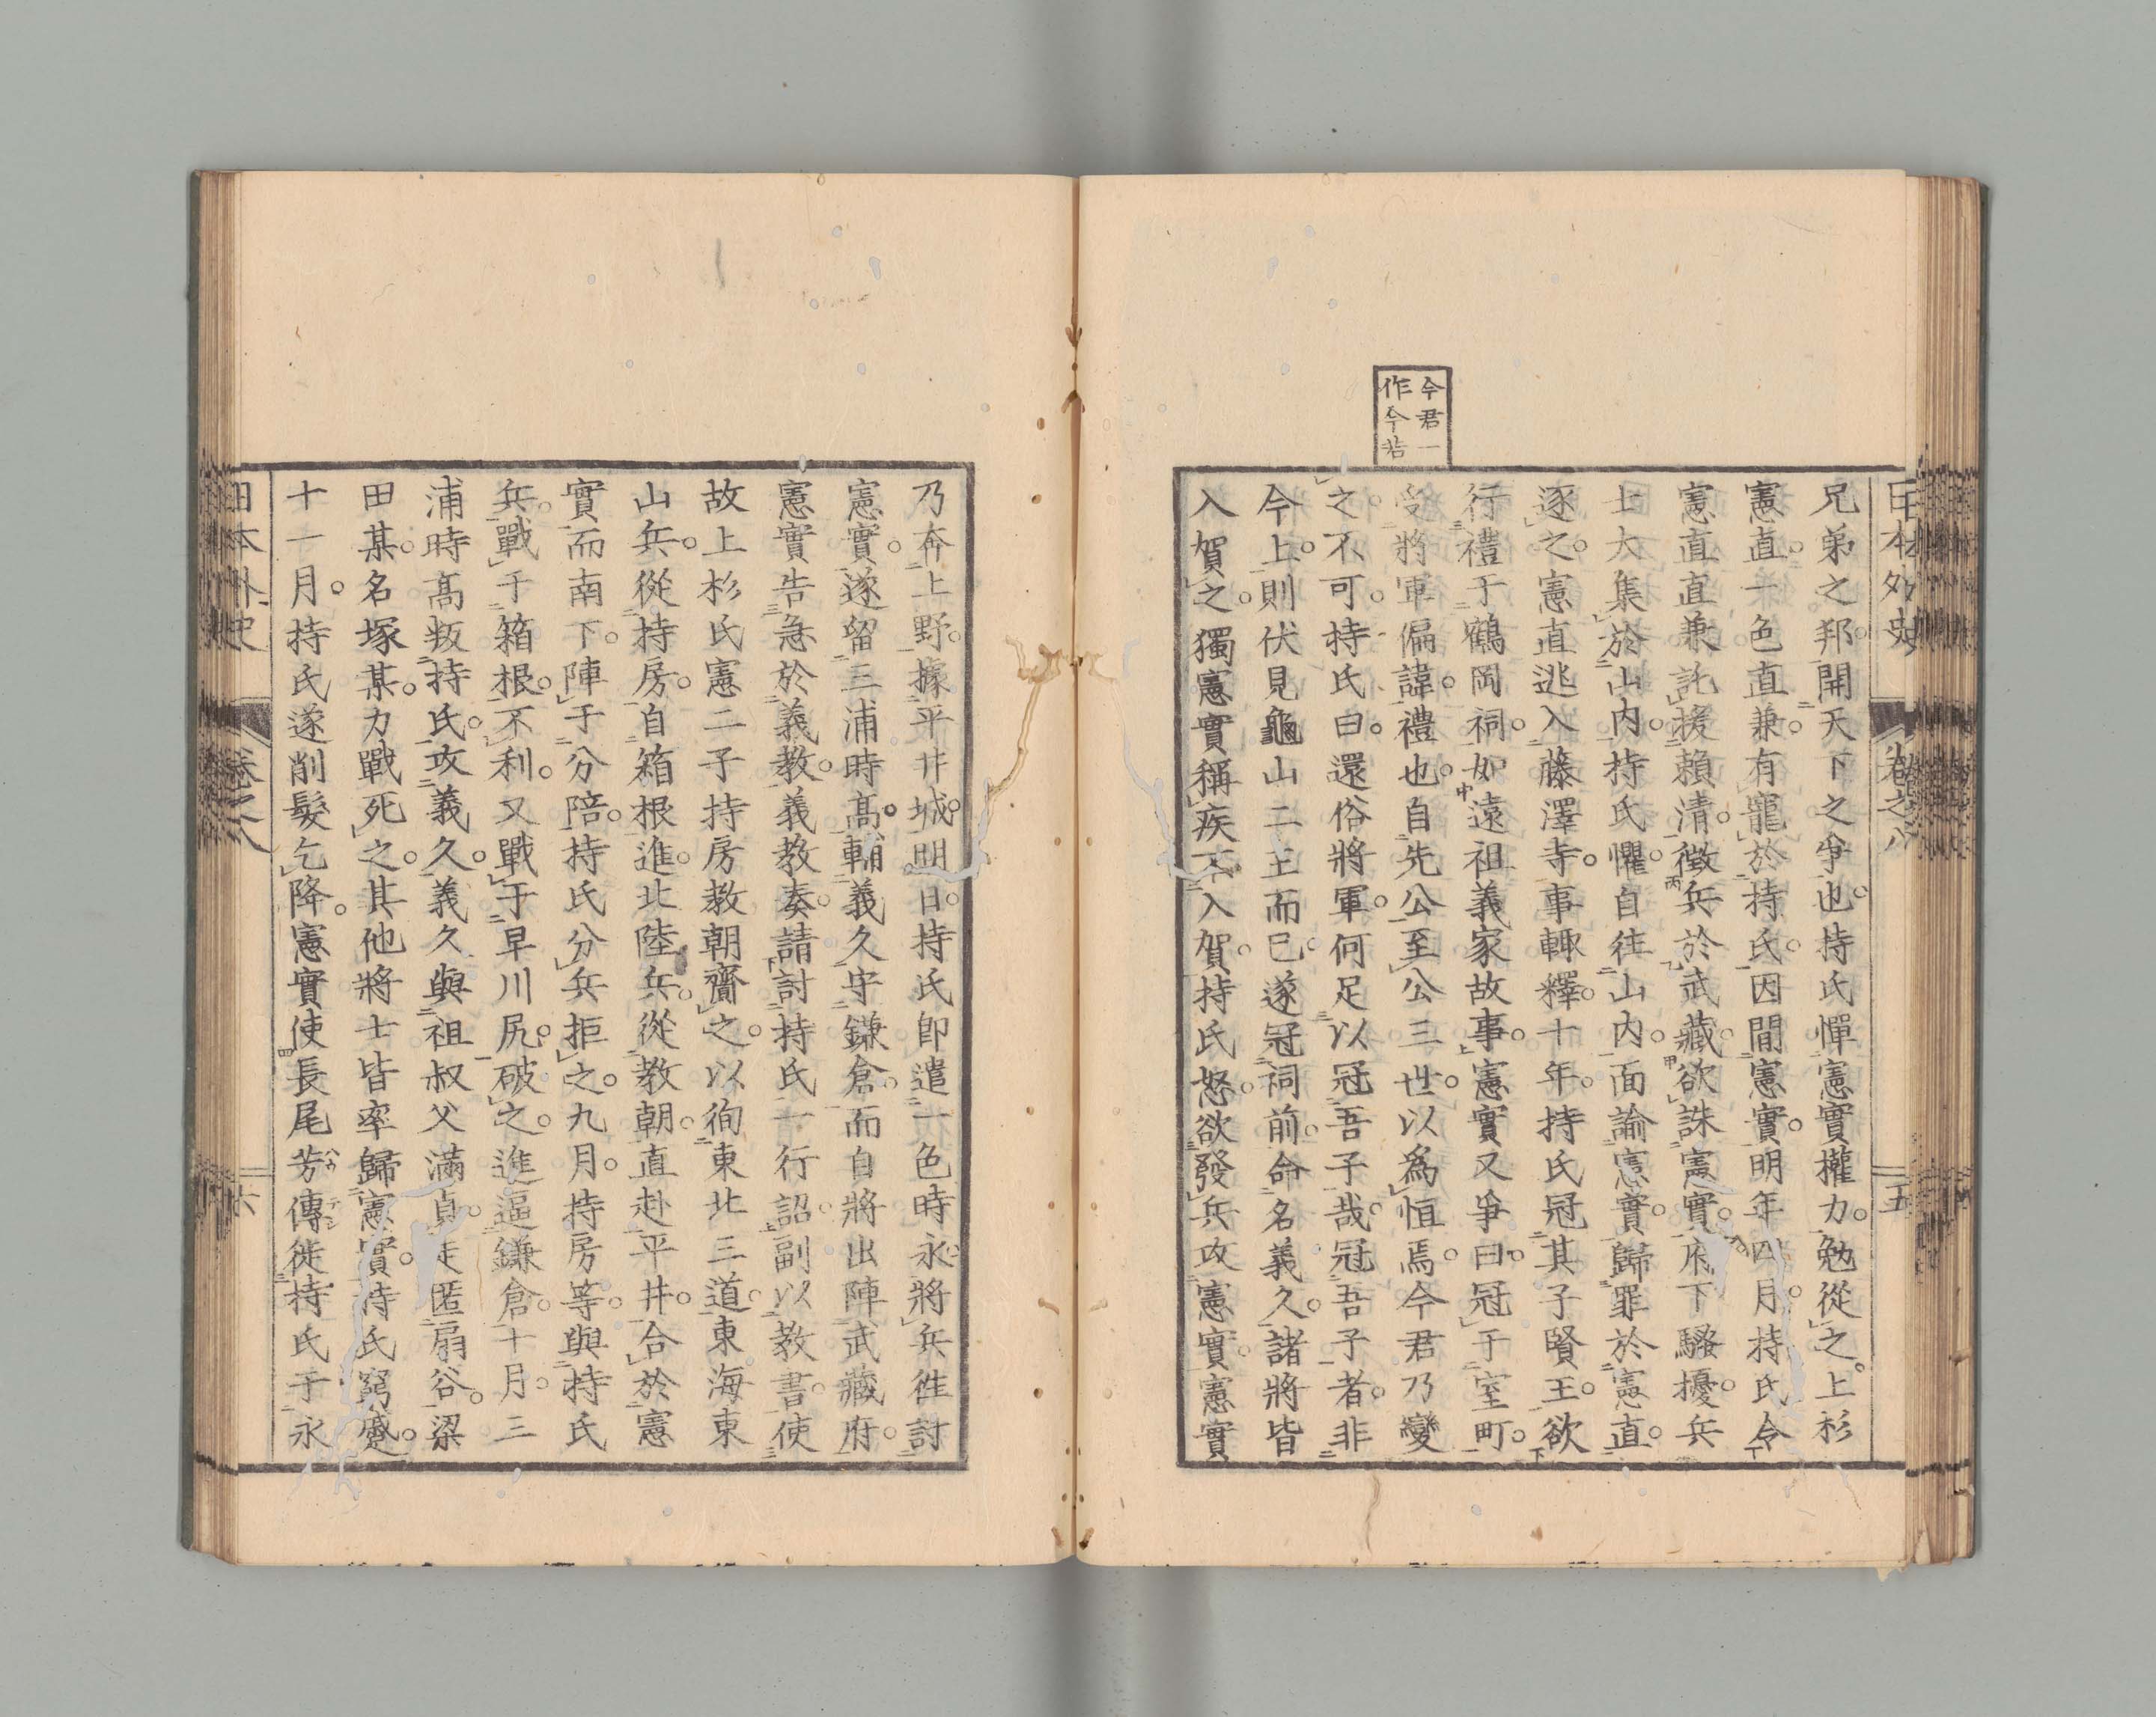 日本外史 卷之八 五
今君一
作今若
兄弟之邦。開天下之爭也。持氏憚憲實權力。勉從之。上杉
憲直。一色直兼。有寵於持氏。因間憲實。明年四月。持氏令
憲直直兼託援賴清。徵兵於武藏。欲誅憲實。府下騷擾。兵
士大集於山内。持氏懼。自往山内。面諭憲實。歸罪於憲直。
逐之。憲直逃入藤澤寺。事輙釋。十年。持氏冠其子賢王。欲
行禮于鶴岡祠。如遠祖義家故事。憲實又爭曰。冠于室町。
受將軍偏諱。禮也。自先公至公三世。以爲恒焉。今君乃變
之不可。持氏曰。還俗將軍。何足以冠吾子哉。冠吾子者。非
今上。則伏見龜山二王而已。遂冠祠前。命名義久。諸將皆
入賀之。獨憲實稱疾不入賀。持氏怒。欲發兵攻憲實。憲實
乃奔上野。據平井城。明日。持氏卽遣一色時永。將兵徃討
憲實。遂留三浦時高。輔義久守鎌倉。而自將出陣武藏府。
憲實告急於義教。義教奏請討持氏一行詔。副以教書。使
故上杉氏憲二子持房教朝齎之。以徇東北三道。東海東
山兵。從持房。自箱根進。北陸兵。從教朝。直赴平井。合於憲
實而南下。陣于分陪。持氏分兵拒之。九月。持房等。與持氏
兵。戰于箱根。不利。又戰于早川尻。破之。進逼鎌倉。十月。三
浦時高叛持氏。攻義久。義久與祖叔父滿貞。走匿扇谷。梁
田某。名塚某。力戰死之。其他將士皆率歸憲實。持氏窮蹙。
十一月。持氏遂削髮乞降。憲實使長尾芳傳徙持氏于永
日本外史 卷之八 六